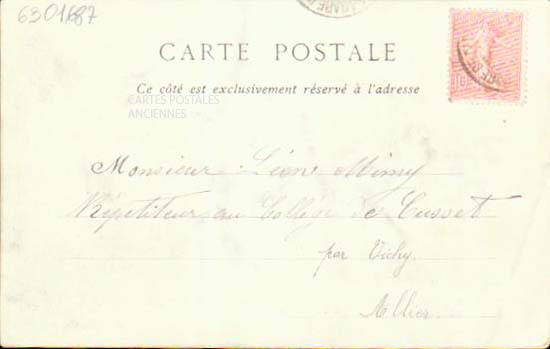 6301687
CARTE POSTALE
Ce côté est exclusivement réservé à l'adresse
CARTES POSTALES
ANCIENNES
Monsieur Léon Mimy
Répétiteur au Collège de Cusset
par Vichy
Allier